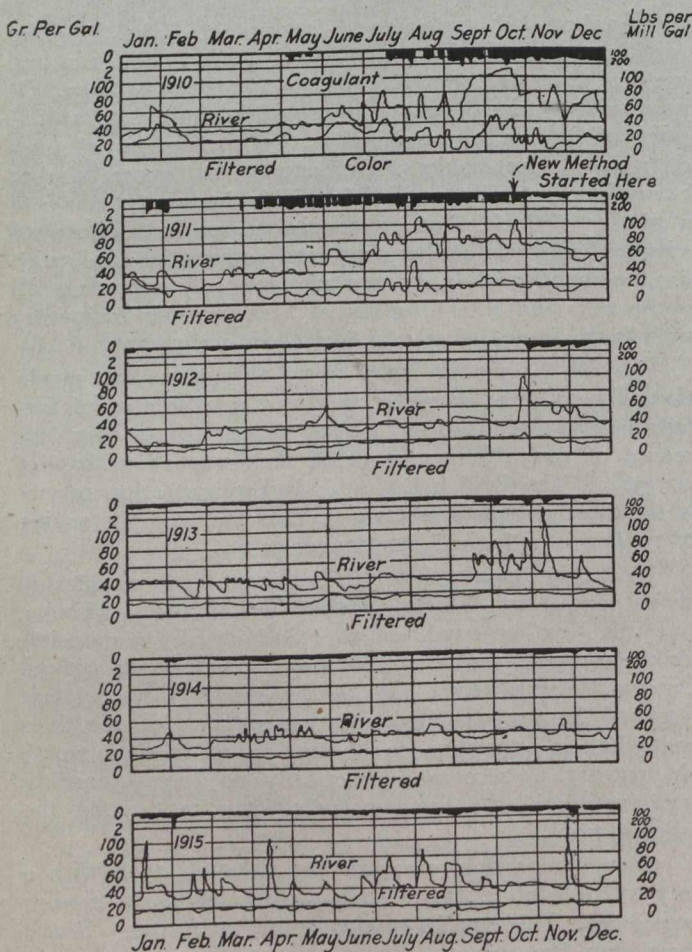 Gr. Per Gal.
Lbs per
Mill Gal
Jan. Feb Mar. Apr. May June July Aug Sept Oct. Nov Dec
0
2
100
80
60
40
20
0
1910
Coagulant
River
Filtered
Color
100
200
100
80
60
40
20
0
New Method
Started Here
0
2
100
80
60
40
20
0
1911
River
Filtered
100
200
100
80
60
40
20
0
0
2
100
80
60
40
20
0
1912
River
Filtered
100
200
100
80
60
40
20
0
0
2
100
80
60
40
20
0
1913
River
Filtered
100
200
100
80
60
40
20
0
0
2
100
80
60
40
20
0
1914
River
Filtered
100
200
100
80
60
40
20
0
0
2
100
80
60
40
20
0
1915
River
Filtered
100
200
100
80
60
40
20
0
Jan. Feb. Mar. Apr. May June July Aug. Sept. Oct. Nov. Dec.